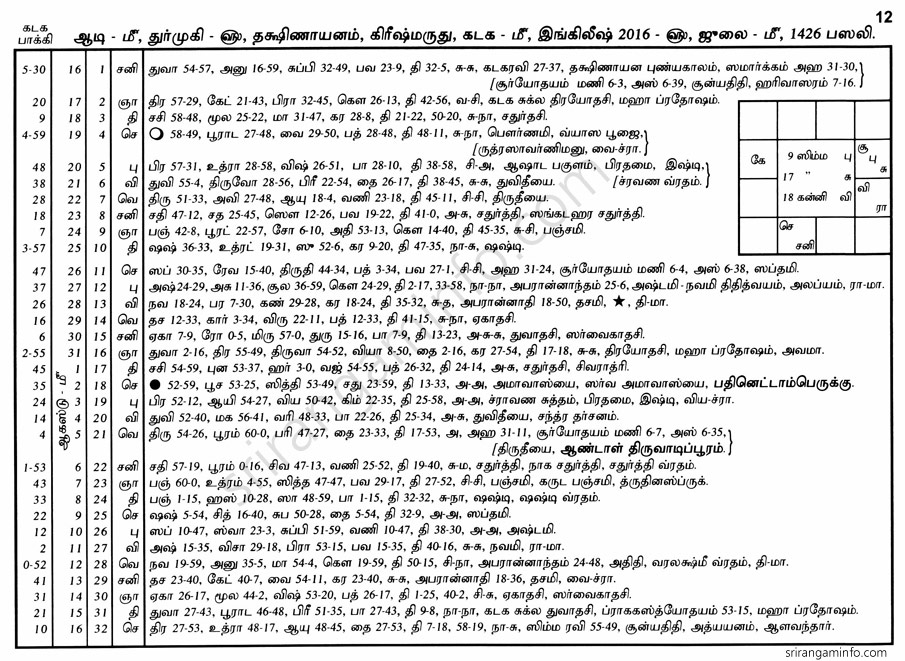 12
கடக
பாக்கி
ஆடி - மீ, துர்முகி - ௵, தக்ஷிணாயனம், கிரீஷ்மருது, கடக - மீ, இங்கிலீஷ் 2016 - ௵, ஜுலை - மீ, 1426 பஸலி.
5-30 16 1 சனி துவா 54-57, அனு 16-59, சுப்பி 32-49, பவ 23-9, தி 32-5, சு-சு, கடகரவி 27-37, தக்ஷிணாயன புண்யகாலம், ஸமார்க்கம் அஹ 31-30,
[சூர்யோதயம் மணி 6-3, அஸ் 6-39, சூன்யதிதி, ஹரிவாஸரம் 7-16.
20 17 2 ஞா திர 57-29, கேட் 21-43, பிரா 32-45, கௌ 26-13, தி 42-56, வ-சி, கடக சுக்ல திரயோதசி, மஹா ப்ரதோஷம்.
9 18 3 தி சசி 58-48, மூல 25-22, மா 31-47, கர 28-8, தி 21-22, 50-20, சு-நா, சதுர்தசி.
4-59 19 4 செ 58-49, பூராட 27-48, வை 29-50, பத் 28-48, தி 48-11, சு-நா, பௌர்ணமி, வ்யாஸ பூஜை,
[ருத்ரஸாவர்ணிமனு, வை-ச்ரா.
48 20 5 பு பிர 57-31, உத்ரா 28-58, விஷ் 26-51, பா 28-10, தி 38-58, சி-அ, ஆஷாட பகுளம், பிரதமை, இஷ்டி,
38 21 6 வி துவி 55-4, திருவோ 28-56, பிரீ 22-54, தை 26-17, தி 38-45, சு-சு, துவிதீயை. [ச்ரவண வ்ரதம்.
28 22 7 வெ திரு 51-33, அவி 27-48, ஆயு 18-4, வணி 23-18, தி 45-11, சி-சி, திருதீயை.
18 23 8 சனி சதி 47-12, சத 25-45, ஸௌ 12-26, பவ 19-22, தி 41-0, அ-சு, சதுர்த்தி, ஸங்கடஹர சதுர்த்தி.
7 24 9 ஞா பஞ் 42-8, பூரட் 22-57, சோ 6-10, அதி 53-13, கௌ 14-40, தி 45-35, சு-சி, பஞ்சமி.
3-57 25 10 தி ஷஷ் 36-33, உத்ரட் 19-31, ஸு 52-6, கர 9-20, தி 47-35, நா-சு, ஷஷ்டி.
கே
9 ஸிம்ம பு
17 " சு
18 கன்னி வி
சூ
பு
சு
வி
ரா
செ
சனி
47 26 11 செ ஸப் 30-35, ரேவ 15-40, திருதி 44-34, பத் 3-34, பவ 27-1, சி-சி, அஹ 31-24, சூர்யோதயம் மணி 6-4, அஸ் 6-38, ஸப்தமி.
37 27 12 பு அஷ் 24-29, அசு 11-36, சூல 36-59, கௌ 24-29, தி 2-17, 33-58, நா-நா, அபரான்னாந்தம் 25-6, அஷ்டமி - நவமி திதித்வயம், அலப்யம், ரா-மா.
26 28 13 வி நவ 18-24, பர 7-30, கண் 29-28, கர 18-24, தி 35-32, சு-த, அபரான்னாதி 18-50, தசமி, ★, தி-மா.
16 29 14 வெ தச 12-33, கார் 3-34, விரு 22-11, பத் 12-33, தி 41-15, சு-நா, ஏகாதசி.
6 30 15 சனி ஏகா 7-9, ரோ 0-5, மிரு 57-0, துரு 15-16, பா 7-9, தி 13-23, அ-சு-சு, துவாதசி, ஸர்வைகாதசி.
2-55 31 16 ஞா துவா 2-16, திர 55-49, திருவா 54-52, வியா 8-50, தை 2-16, கர 27-54, தி 17-18, சு-சு, திரயோதசி, மஹா ப்ரதோஷம், அவமா.
ஆகஸ்டு - மீ
45 1 17 தி சசி 54-59, புன 53-37, ஹர் 3-0, வஜ் 54-55, பத் 26-32, தி 24-14, அ-சு, சதுர்தசி, சிவராத்ரி.
35 2 18 செ 52-59, பூச 53-25, ஸித்தி 53-49, சது 23-59, தி 13-33, அ-அ, அமாவாஸ்யை, ஸர்வ அமாவாஸ்யை, பதினெட்டாம்பெருக்கு.
24 3 19 பு பிர 52-12, ஆயி 54-27, விய 50-42, கிம் 22-35, தி 25-58, அ-அ, ச்ராவண சுத்தம், பிரதமை, இஷ்டி, விய-ச்ரா.
14 4 20 வி துவி 52-40, மக 56-41, வரி 48-33, பா 22-26, தி 25-34, அ-சு, துவிதீயை, சந்த்ர தர்சனம்.
4 5 21 வெ திரு 54-26, பூரம் 60-0, பரி 47-27, தை 23-33, தி 17-53, அ, அஹ 31-11, சூர்யோதயம் மணி 6-7, அஸ் 6-35,
[திருதீயை, ஆண்டாள் திருவாடிப்பூரம்.
1-53 6 22 சனி சதி 57-19, பூரம் 0-16, சிவ 47-13, வணி 25-52, தி 19-40, சு-ம, சதுர்த்தி, நாக சதுர்த்தி, சதுர்த்தி வ்ரதம்.
43 7 23 ஞா பஞ் 60-0, உத்ரம் 4-55, ஸித்த 47-47, பவ 29-17, தி 27-52, சி-சி, பஞ்சமி, கருட பஞ்சமி, த்ருதினஸ்ப்ருக்.
33 8 24 தி பஞ் 1-15, ஹஸ் 10-28, ஸா 48-59, பா 1-15, தி 32-32, சு-நா, ஷஷ்டி, ஷஷ்டி வ்ரதம்.
22 9 25 செ ஷஷ் 5-54, சித் 16-40, சுப 50-28, தை 5-54, தி 32-9, அ-அ, ஸப்தமி.
12 10 26 பு ஸப் 10-47, ஸ்வா 23-3, சுப்பி 51-59, வணி 10-47, தி 38-30, அ-அ, அஷ்டமி.
2 11 27 வி அஷ் 15-35, விசா 29-18, பிரா 53-15, பவ 15-35, தி 40-16, சு-சு, நவமி, ரா-மா.
0-52 12 28 வெ நவ 19-59, அனு 35-5, மா 54-4, கௌ 19-59, தி 50-15, சி-நா, அபரான்னாந்தம் 24-48, அதிதி, வரலக்ஷ்மீ வ்ரதம், தி-மா.
41 13 29 சனி தச 23-40, கேட் 40-7, வை 54-11, கர 23-40, சு-சு, அபரான்னாதி 18-36, தசமி, வை-ச்ரா.
31 14 30 ஞா ஏகா 26-17, மூல 44-2, விஷ் 53-20, பத் 26-17, தி 1-25, 40-2, சி-சு, ஏகாதசி, ஸர்வைகாதசி.
21 15 31 தி துவா 27-43, பூராட 46-48, பிரீ 51-35, பா 27-43, தி 9-8, நா-நா, கடக சுக்ல துவாதசி, ப்ராககஸ்த்யோதயம் 53-15, மஹா ப்ரதோஷம்.
10 16 32 செ திர 27-53, உத்ரா 48-17, ஆயு 48-45, தை 27-53, தி 7-18, 58-19, நா-சு, ஸிம்ம ரவி 55-49, சூன்யதிதி, அத்யயனம், ஆளவந்தார்.
srirangaminfo.com
srirangaminfo.com